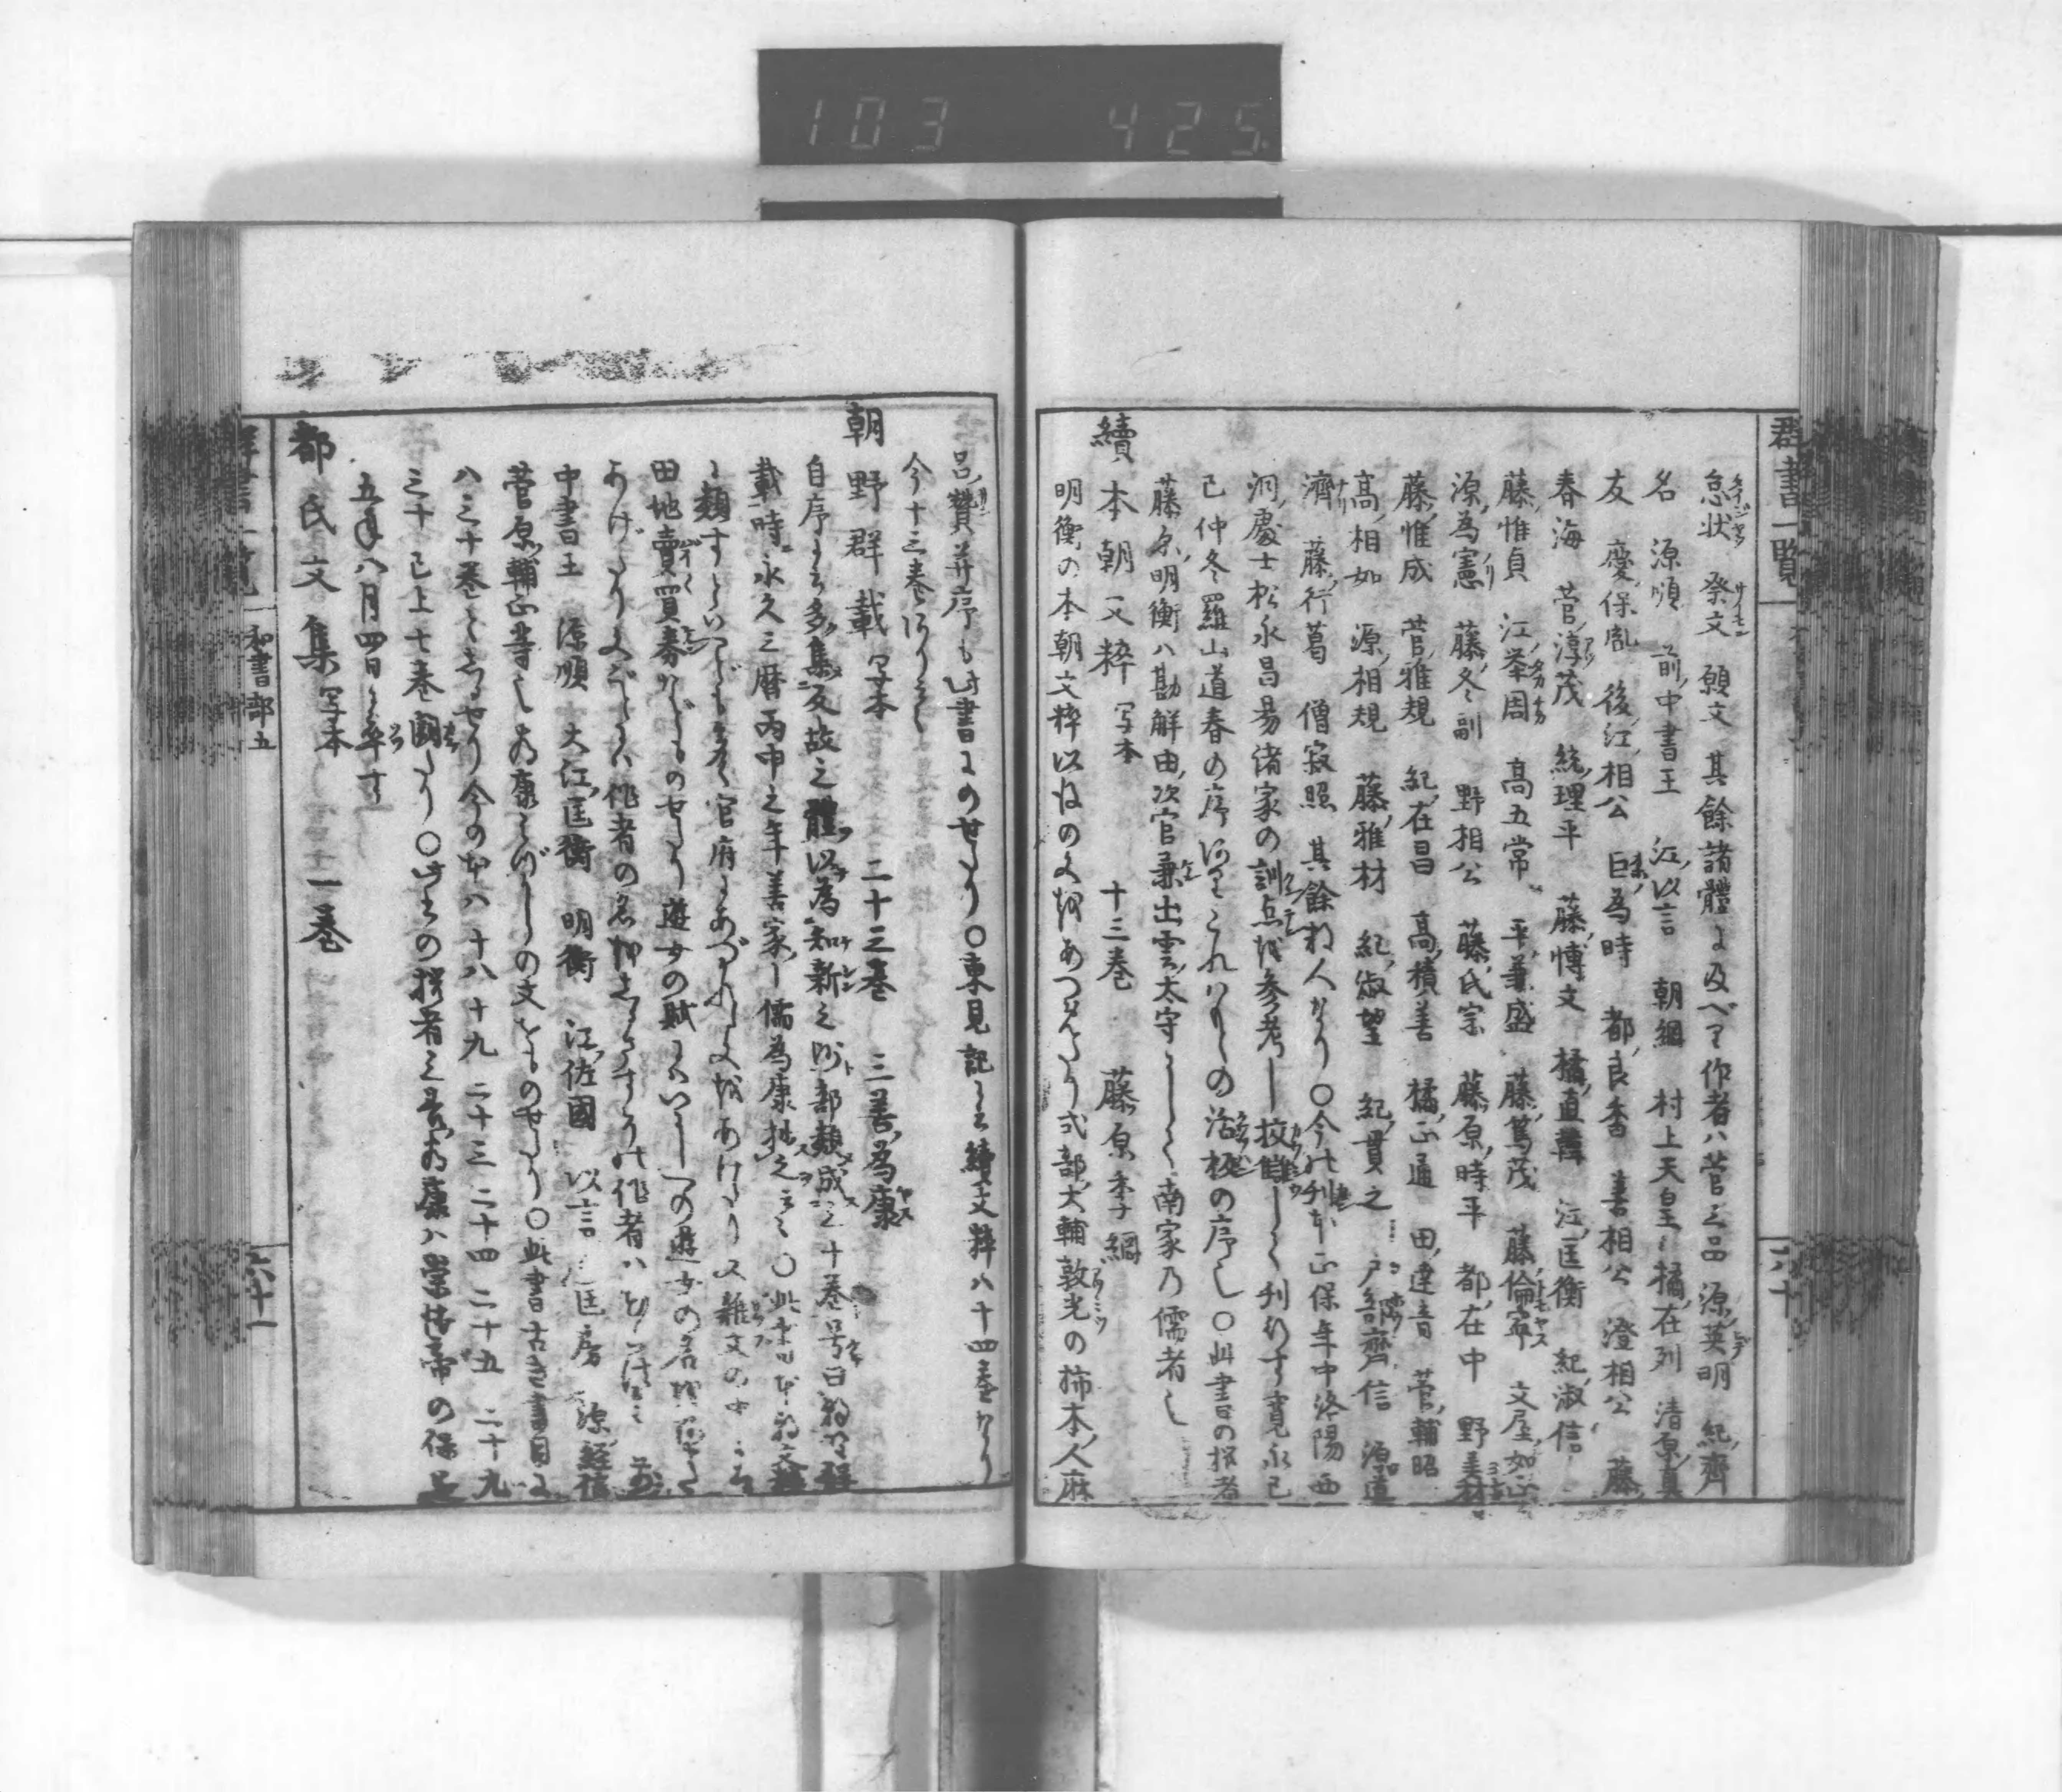 103 425
群書一覽 六十
怠状 祭文 願文 其餘諸體に及べり作者ハ菅三品 源英明 紀齊
名 源順 前中書王 江以言 朝綱 村上天皇 橘在列 清原真
友 慶保胤 後江相公 巨為時 都良香 善相公 澄相公 藤
春海 菅淳茂 統理平 藤博文 橘直幹 江匡衡 紀淑信
藤惟貞 江挙周 高五常 平兼盛 藤篤茂 藤倫寧 文屋如正
源為憲 藤冬副 野相公 藤氏宗 藤原時平 都在中 野美材
藤惟成 菅雅規 紀在昌 高積善 橘正通 田達音 菅輔昭
高相如 源相規 藤雅材 紀淑望 紀貫之 戸部齊信 源道
濟 藤行葛 僧寂照 其餘數人なり〇今の刊本ハ正保年中洛陽西
洞處士松永昌易諸家の訓点を参考し校讐して刊行す寛永己
己仲冬羅山道春の序ありこれハもとの活板の序也〇此書の撰者
藤原明衡ハ勘解由次官兼出雲太守にして南家乃儒者也
續本朝文粹 写本 十三巻 藤原季綱
明衡の本朝文粹以後の文をあつめたり式部大輔敦光の柿本人麻
呂贊并序も此書にのせたり〇東見記に云續文粹ハ十四巻なり
今十三巻ありと
朝野群載 写本 二十三巻 三善為康
自序に云多集反故之體以為知新之師部類成三十巻号曰朝野群
載時永久三暦丙申之年善家一儒為康拙之云云〇此書も本朝文粹
の類すといへども多く官府にあづかれる文をあけたり又雜文の中にハ
田地賣買券などものせたり遊女の賦にハいにしへの遊女の名を
あげたり
中書王 源順 大江匡衡 明衡 江佐國 以言 匡房 源經信
菅原輔正等也為康みづからの文をものせたり〇此書古き書目に
ハ三十巻としるせり今の本ハ十八十九 二十三 二十四 二十五 二十九
三十已上七巻闕たり〇此書の撰者三善為康ハ崇徳帝の保延
五年八月四日に卒す
都氏文集 写本 十一巻
群書一覽 和書部五 六十一